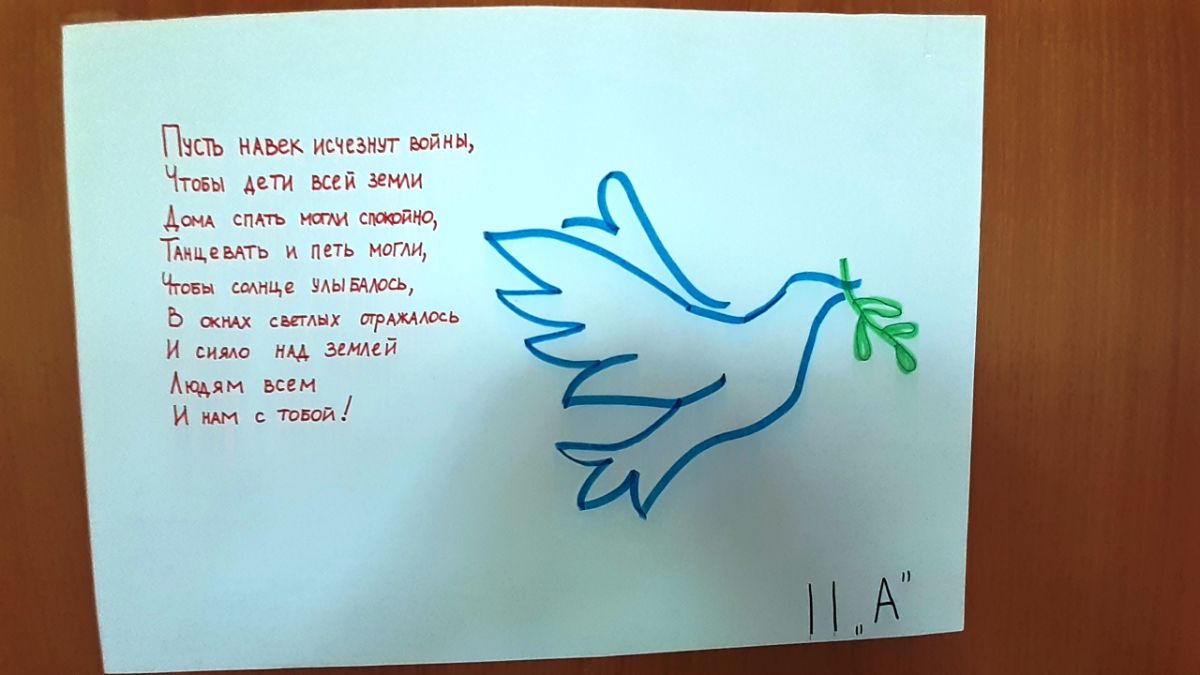 Пусть навек исчезнут войны,
Чтобы дети всей земли
Дома спать могли спокойно,
Танцевать и петь могли,
Чтобы солнце улыбалось,
В окнах светлых отражалось
И сияло над землей
Людям всем
И нам с тобой!
11 „А”